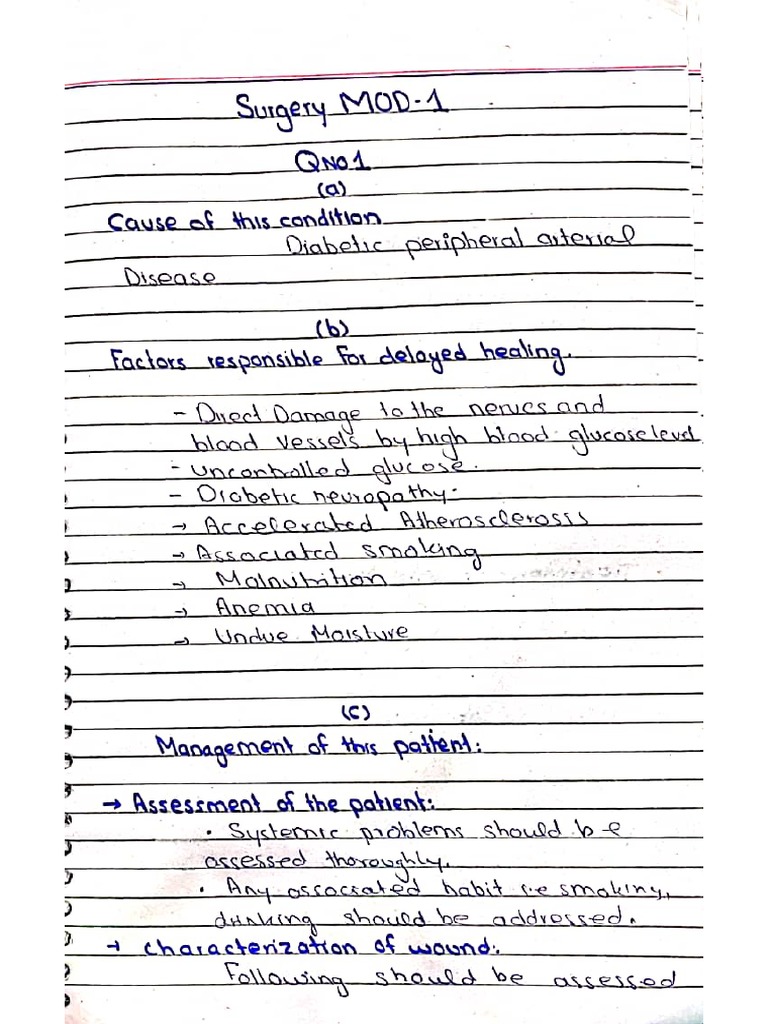 Surgery MOD-1
QNO1
(a)
Cause of this condition
Diabetic peripheral arterial
Disease
(b)
Factors responsible for delayed healing.
- Direct Damage to the nerves and
blood vessels by high blood glucose level
- uncontrolled glucose.
- Diabetic neuropathy.
→ Accelerated Atherosclerosis
→ Associated smoking
→ Malnutrition
→ Anemia
→ Undue Moisture
(c)
Management of this patient:
→ Assessment of the patient:
• Systemic problems should be
assessed thoroughly.
• Any associated habit i.e smoking,
drinking should be addressed.
→ characterization of wound:
Following should be assessed